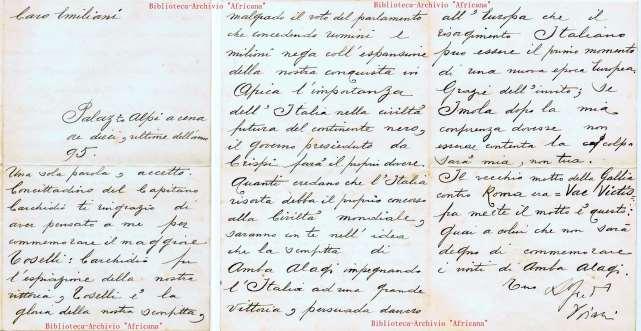 Biblioteca-Archivio "Africana"
Caro Emiliani
Palaz: Alpi a cena
ore dieci, ultime dell'anno
95.
Una sola parola, accetto.
Concittadino del Capitano
Carchidio ti ringrazio di
aver pensato a me per
commemorare il maggiore
Toselli: Carchidio fu
l'espiazione della nostra
vittoria, Toselli è la
gloria della nostra sconfitta,
Biblioteca-Archivio "Africana"
malgrado il voto del parlamento
che concedendo uomini e
milioni nega coll'espansione
della nostra conquista in
Africa l'importanza
dell'Italia nella civiltà
futura del continente nero,
il governo presieduto da
Crispi farà il proprio dovere.
Quanti credano che l'Italia
risorta debba il proprio concorso
alla Civiltà mondiale,
saranno in te nell'idea
che la sconfitta di
Amba Alagi impegnando
l'Italia ad una grande
vittoria, persuada davvero
Biblioteca-Archivio "Africana"
all'Europa che il
risorgimento Italiano
può essere il primo momento
di una nuova epoca Europea.
Grazie dell'invito; se
Imola dopo la mia
conferenza dovesse non
essere contenta la colpa
sarà mia, non tua.
Il vecchio motto della Gallia
contro Roma era = Vae Victis =
fra me e te il motto è questi:
Guai a colui che non sarà
degno di commemorare
i vinti di Amba Alagi.
Tuo Alfredo
Oriani
Biblioteca-Archivio "Africana"
Biblioteca-Archivio "Africana"